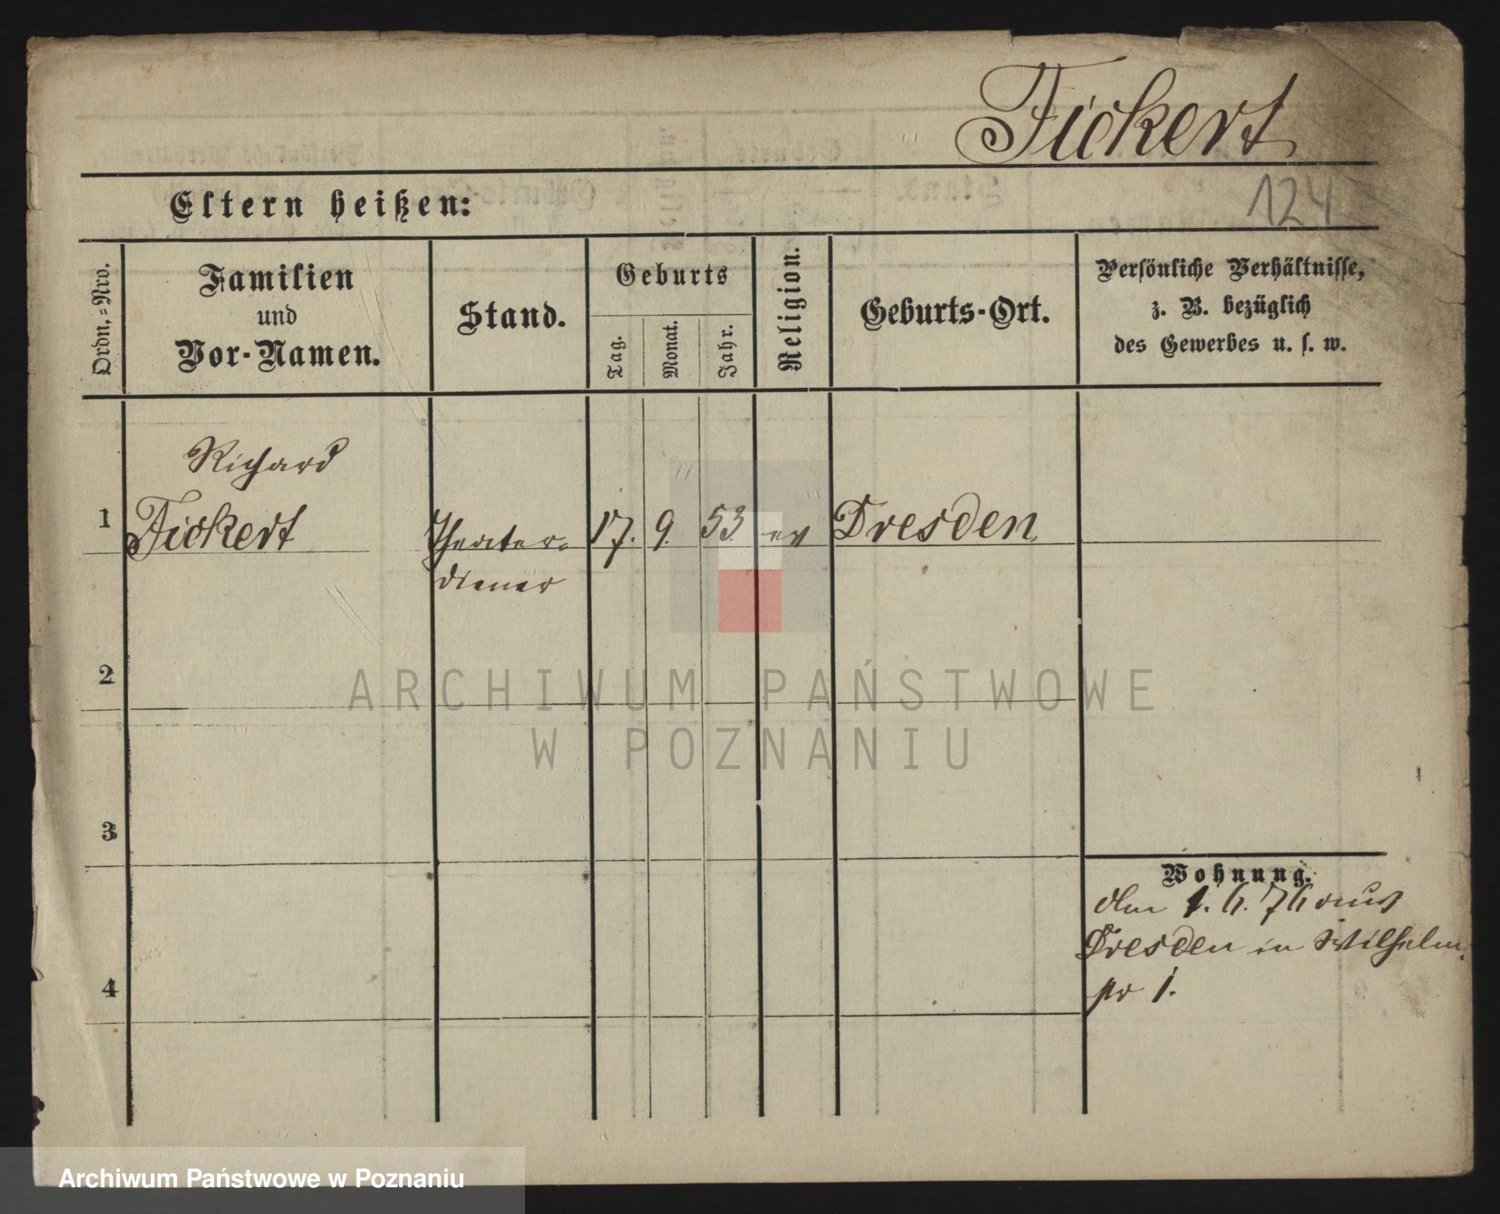 Fickert
124
Eltern heißen:
Ordn.-Nro.
Familien
und
Vor-Namen.
Stand.
Geburts
Tag.
Monat.
Jahr.
Religion.
Geburts-Ort.
Persönliche Verhältnisse,
z. B. bezüglich
des Gewerbes u. s. w.
Richard
1 Fickert Theater- 17. 9. 53 ev Dresden
diener
2
ARCHIWUM PAŃSTWOWE
W POZNANIU
3
Wohnung.
1. 6. 76 aus
Dresden in Wilhelm
4
1.
Archiwum Państwowe w Poznaniu